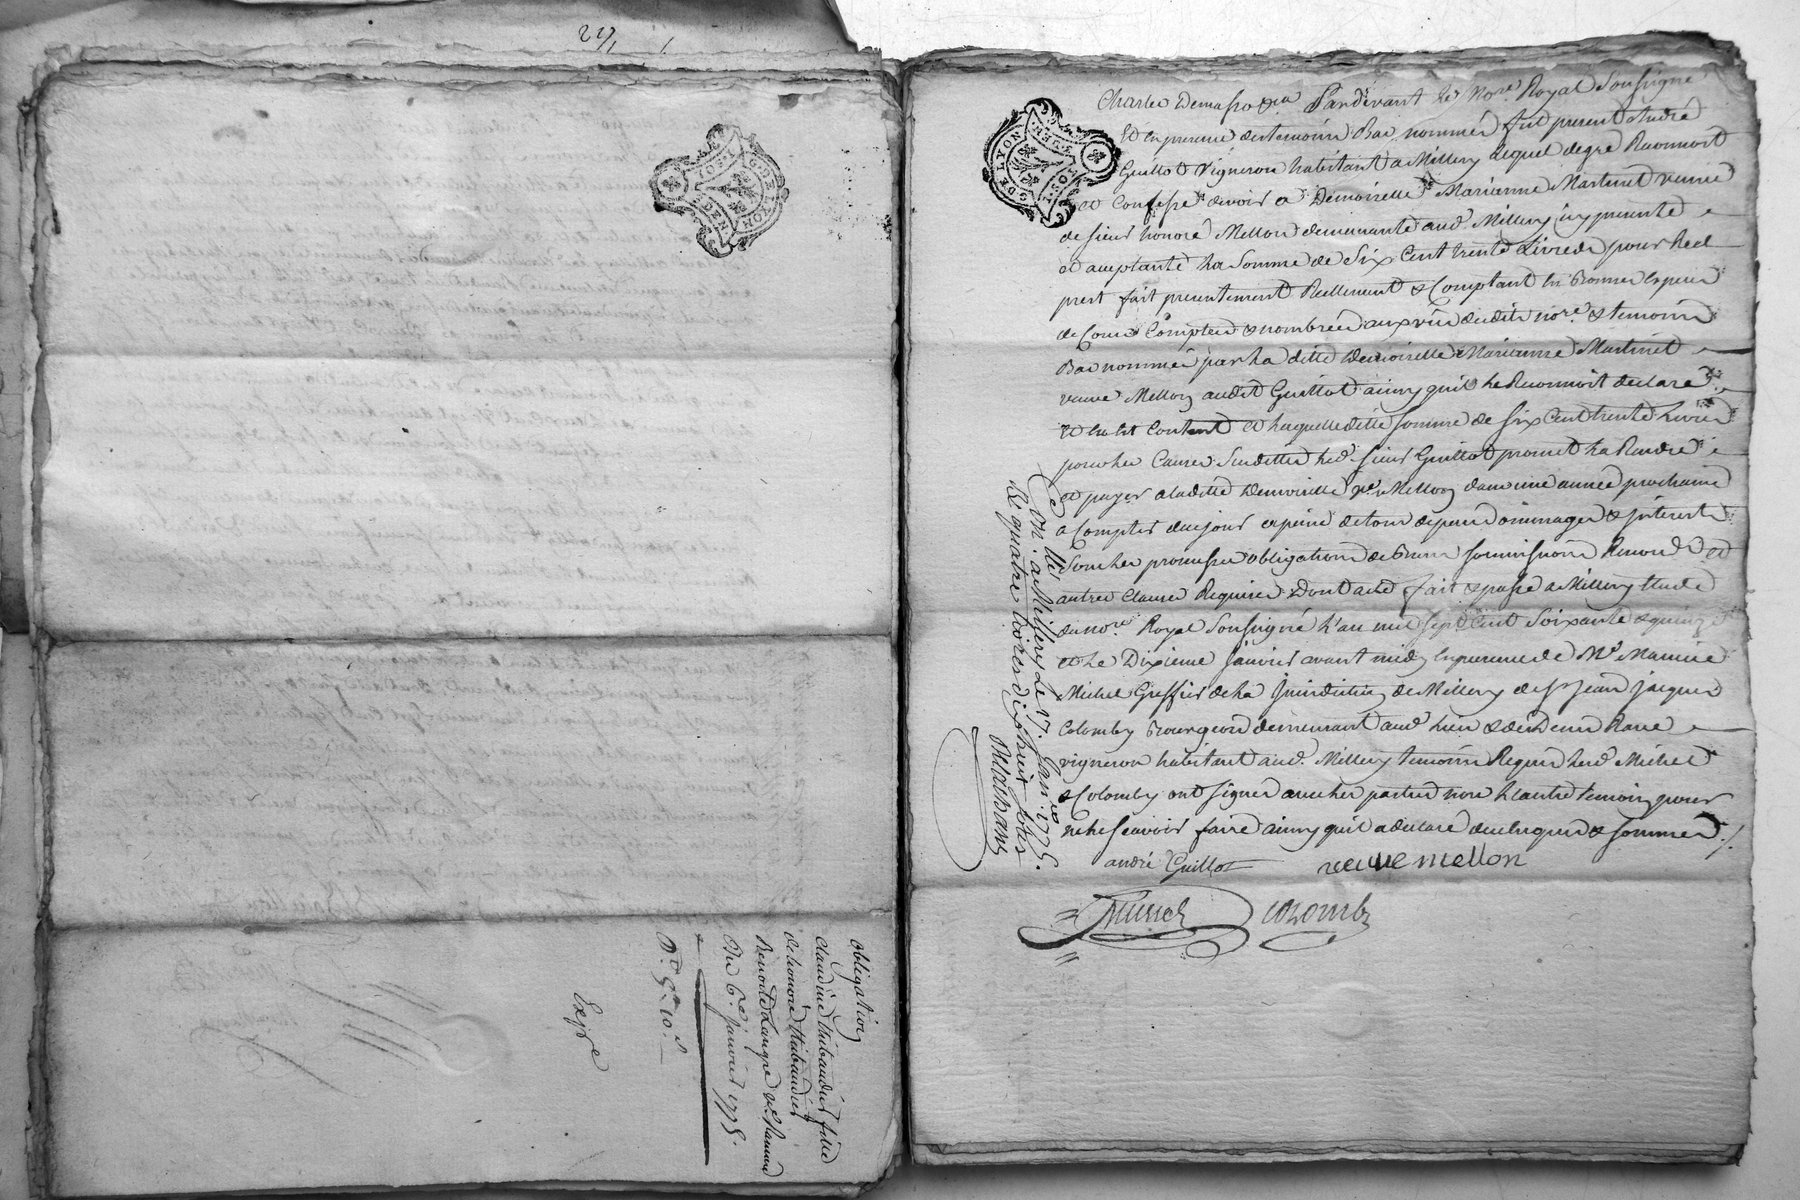 obligation
claudine thibaudier fille
de honoré thibaudier
Benoite Langre ve. Ramud
Du 6e. janvier 1775.
Expe
GDE LYON
GEN
Pardevant le nore. Royal Soussigné
Et en presence des temoins Bas nommés fut present André
Guillot vigneron habitant a Millery lequel de gré Reconnoit
et Confesse devoir a Demoiselle Marianne Martinet veuve
de sieur honoré Mellon demeurante aud. Millery icy presente
et acceptante la somme de Six Cent trente Livres pour Reel
prest fait presentement Reellement & Comptant En Bonnes Especes
de Cours Comptées & nombrées aux vües desdits nore. & temoins
Bas nommés par la ditte demoiselle Marianne Martinet
veuve Mellon audit Guillot ainsy quil le Reconnoit declare
Et En Est Content et laquelle ditte somme de six Cent trente Livres
pour les Causes Susdittes led. sieur Guillot promet la Rendre
et payer a laditte demoiselle ve. Mellon dans une année prochaine
a Compter de ce jour a peine de tous depens dommages & interests
Sous les promesses obligations de Biens soumissions Renon... et
autres clauses Requises Dont acte fait & passé a Millery Etude
du nore. Royal Soussigné L'an mil sept Cent Soixante & quinze
et Le Dixieme janvier avant midy En presence de Me. Maurice
Michel Greffier de la jurisdiction de Millery de sr. jean jacques
Colomby Bourgeois demeurant aud. lieu & de Rave
vigneron habitant aud. Millery temoins Requis lesd. Michel
& Colomby ont signé avec les parties non L'autre temoin pour
ne le scavoir faire ainsy quil a declaré de ce Enquis & sommé ./.
andré Guillot
veuve mellon
Michel
colomby
GDE LYON
GEN
Con.lle a Millery Le 17. Jan.er 1775.
Rç quatre livres dix huit sols